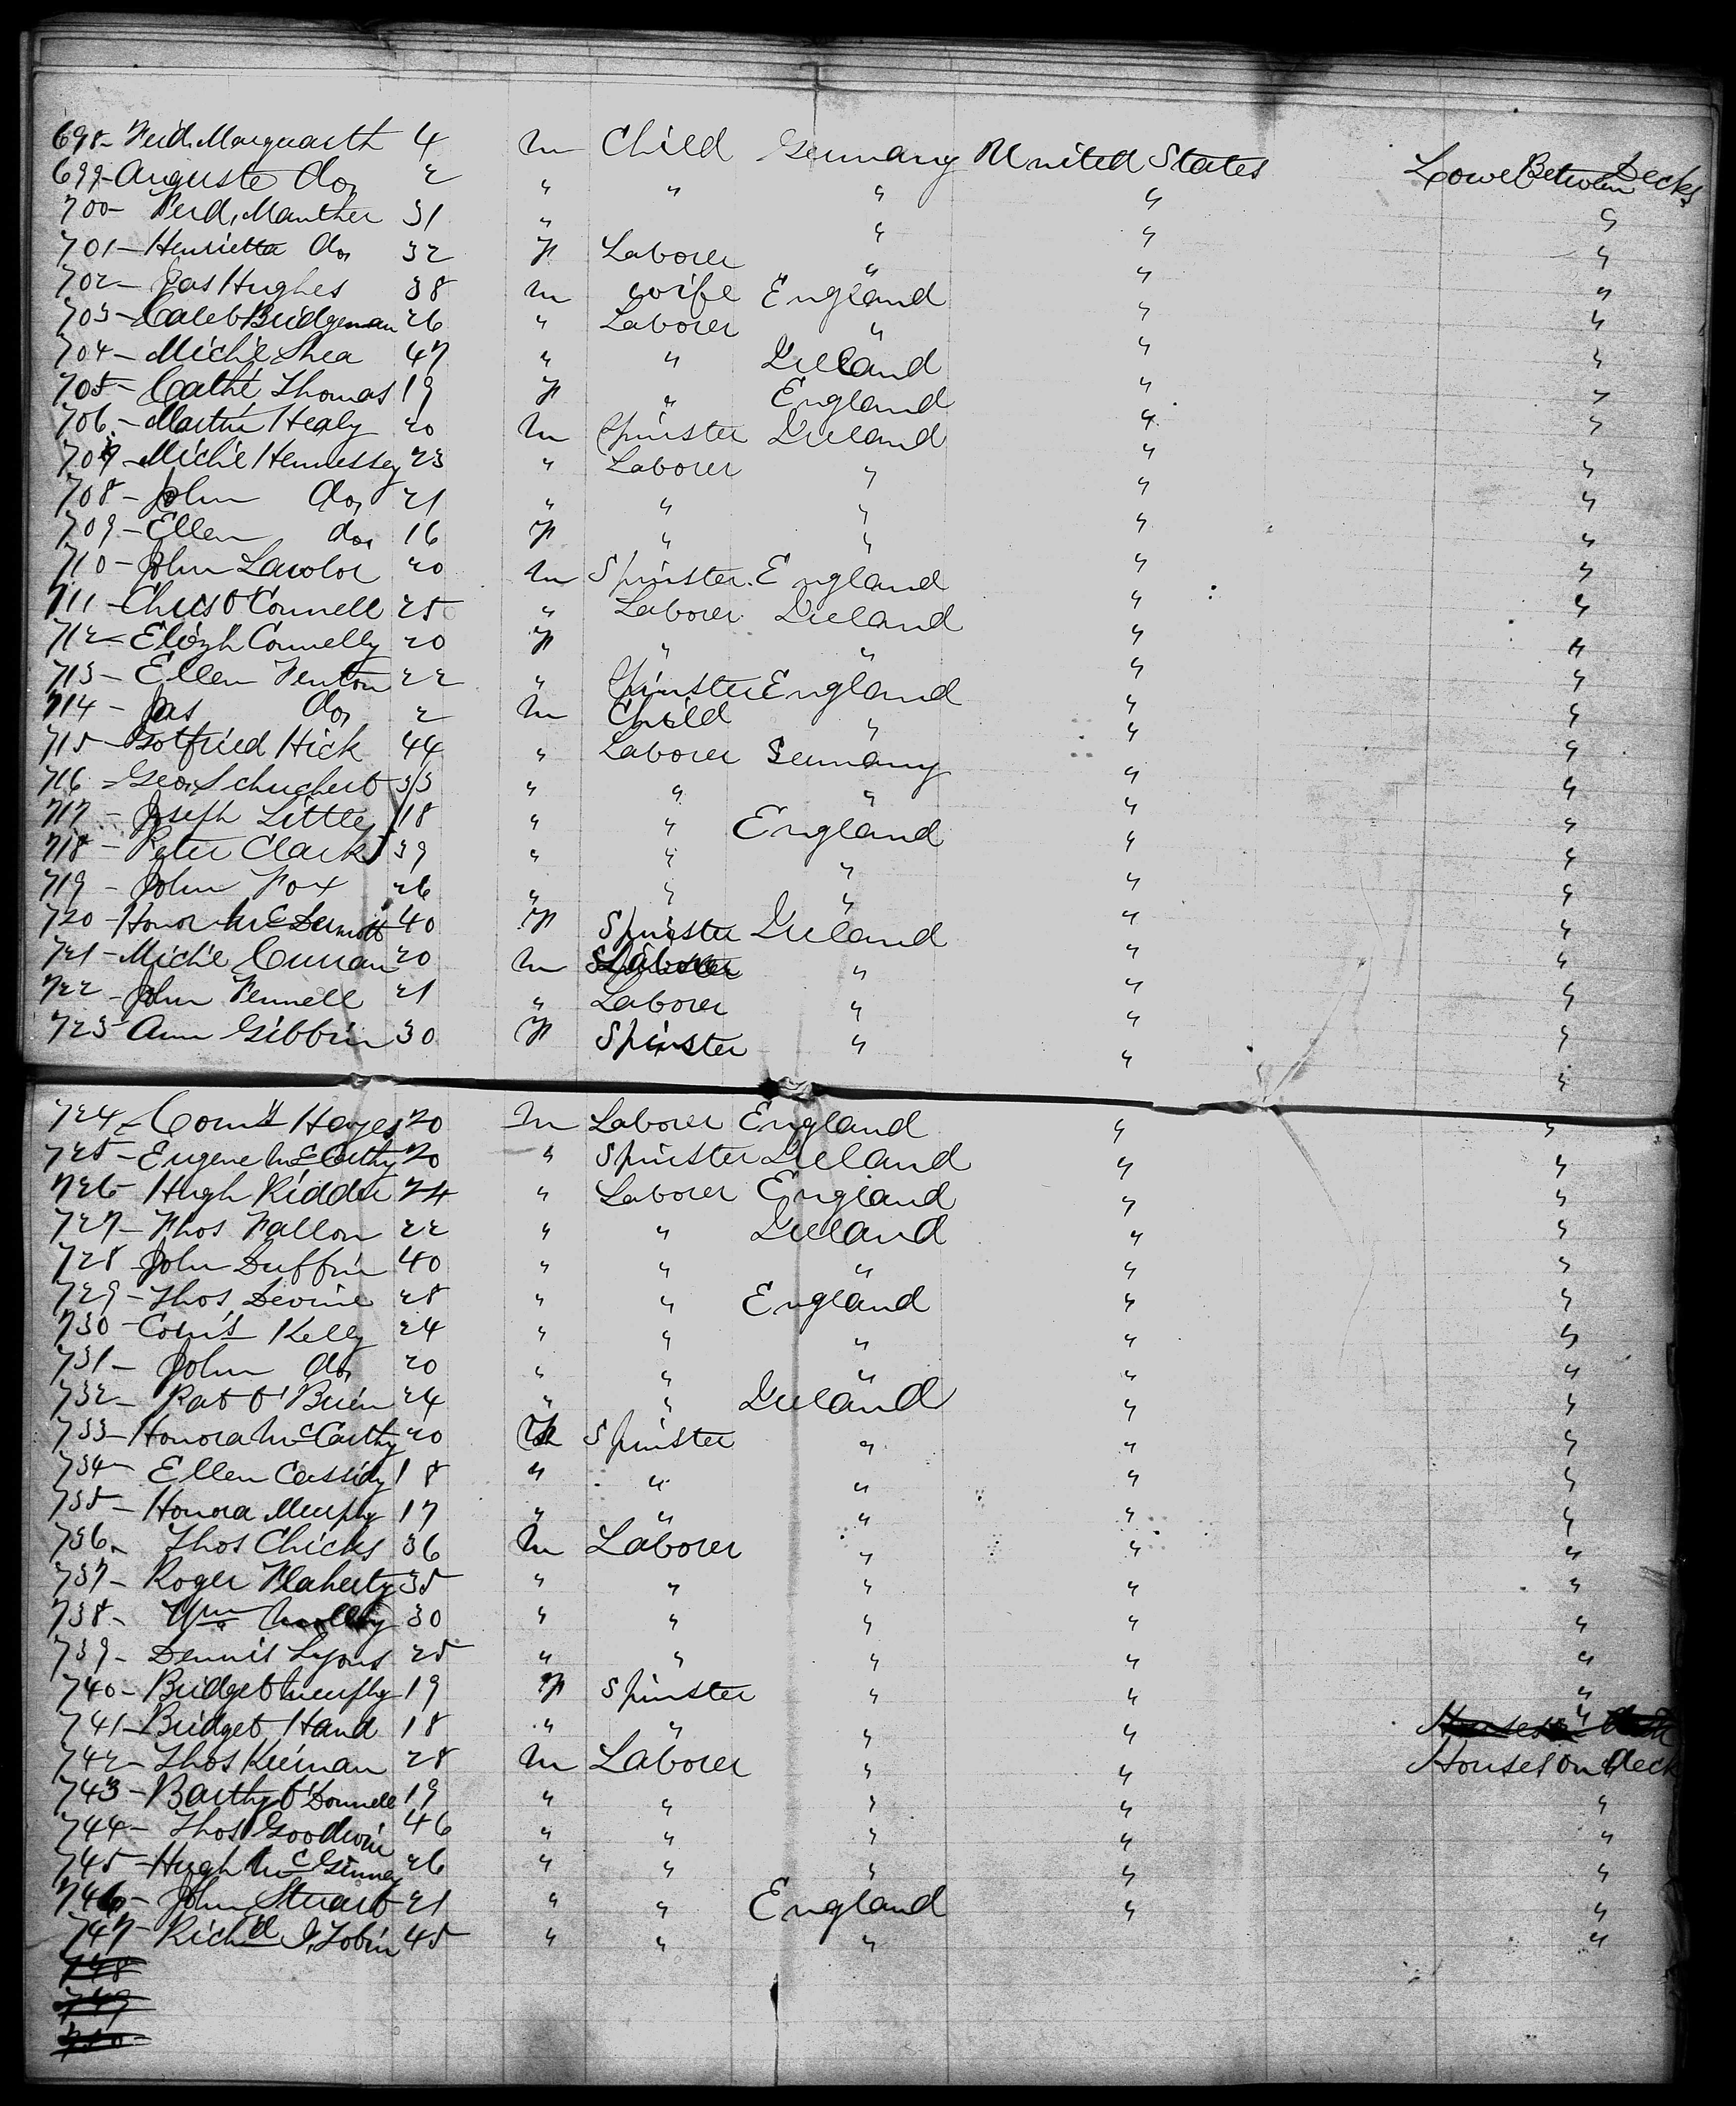 698- Ferd. Marquardt 4 M Child Germany United States Lower Between Decks
699- Auguste do, 2 " " " " "
700- Ferd, Manther 31 " " " "
701- Henrietta do, 32 F Laborer " " "
702- Jas Hughes 38 M wife England " "
703- Caleb Bridgeman 26 " Laborer " " "
704- Michl Shea 47 " " Ireland " "
705- Cathe Thomas 19 F " England " "
706- Martin Healy 20 M Spinster Ireland " "
707- Michl Hennessey 23 " Laborer " " "
708- John do, 21 " " " " "
709- Ellen do, 16 F " " " "
710- John Lawlor 20 M Spinster England " "
711- Chris O'Connell 25 " Laborer Ireland " "
712- Elizh Connelly 20 F " " " "
713- Ellen Fenton 22 " Spinster England " "
714- Jas do, 2 M Child " " "
715- Gotfried Hick 44 " Laborer Germany " "
716- Geo. Schuchert 33 " " " " "
717- Joseph Little 18 " " England " "
718- Peter Clark 39 " " " " "
719- John Fox 26 " " " " "
720- Honor McDermott 40 F Spinster Ireland " "
721- Michl Curran 20 M Laborer " " "
722- John Fennell 21 " Laborer " " "
723- Ann Gibbin 30 F Spinster " " "
724- Corns Hayes 20 M Laborer England " "
725- Eugene McCarthy 20 " Spinster Ireland " "
726- Hugh Kidder 24 " Laborer England " "
727- Thos Fallon 22 " " Ireland " "
728 John Duffin 40 " " " " "
729- Thos, Devine 28 " " England " "
730- Corns Kelly 24 " " " " "
731- John do, 20 " " " " "
732- Pat O'Brien 24 " " Ireland " "
733- Honora McCarthy 20 F Spinster " " "
734- Ellen Cassidy 18 " " " " "
735- Honora Murphy 17 " " " " "
736- Thos Chicks 36 M Laborer " " "
737- Roger Flaherty 35 " " " " "
738- Wm 30 " " " " "
739- Dennis Lyons 25 " " " " "
740- Bridget Murphy 19 F Spinster " " "
741- Bridget Hand 18 " " " " "
742- Thos Kiernan 28 M Laborer " " Houses on Deck
743- Barthy O'Donnell 19 " " " " "
744- Thos Goodwin 46 " " " " "
745- Hugh McGinney 26 " " " " "
746- John Stuart 21 " " England " "
747- Richd J. Tobin 45 " " " "
748
749
750